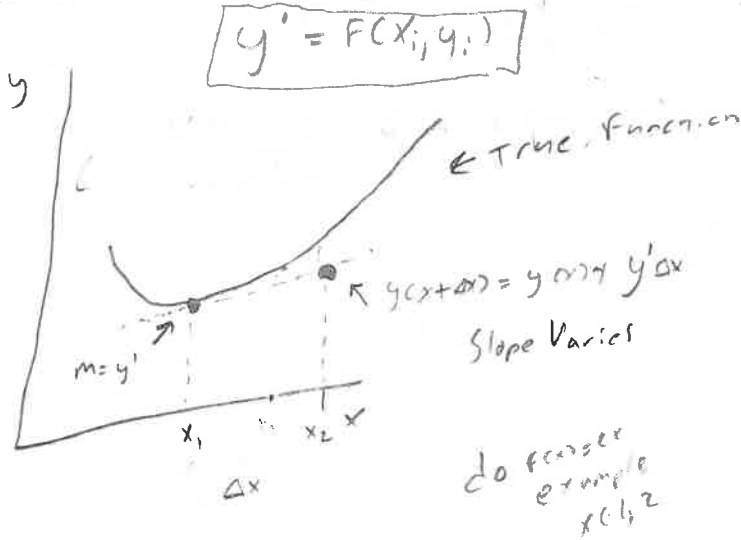 y' = F(x_i, y_i)
y
← True Function
y(x+Δx) = y(x) + y'Δx
Slope Varies
m = y'
x_1
x_2 x
Δx
do f(x)=e^x
example